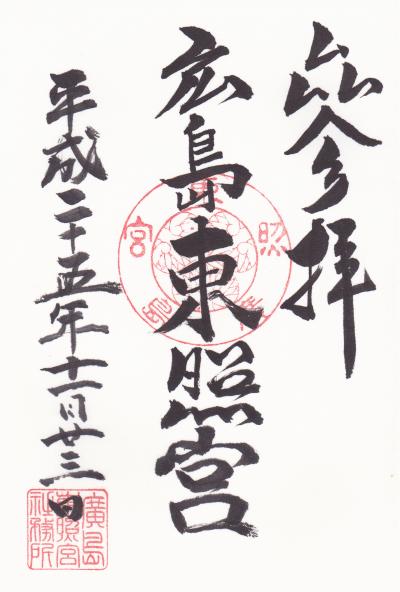 奉参拝
広島東照宮
平成二十五年十一月廿三日
廣島
東照宮
社務所